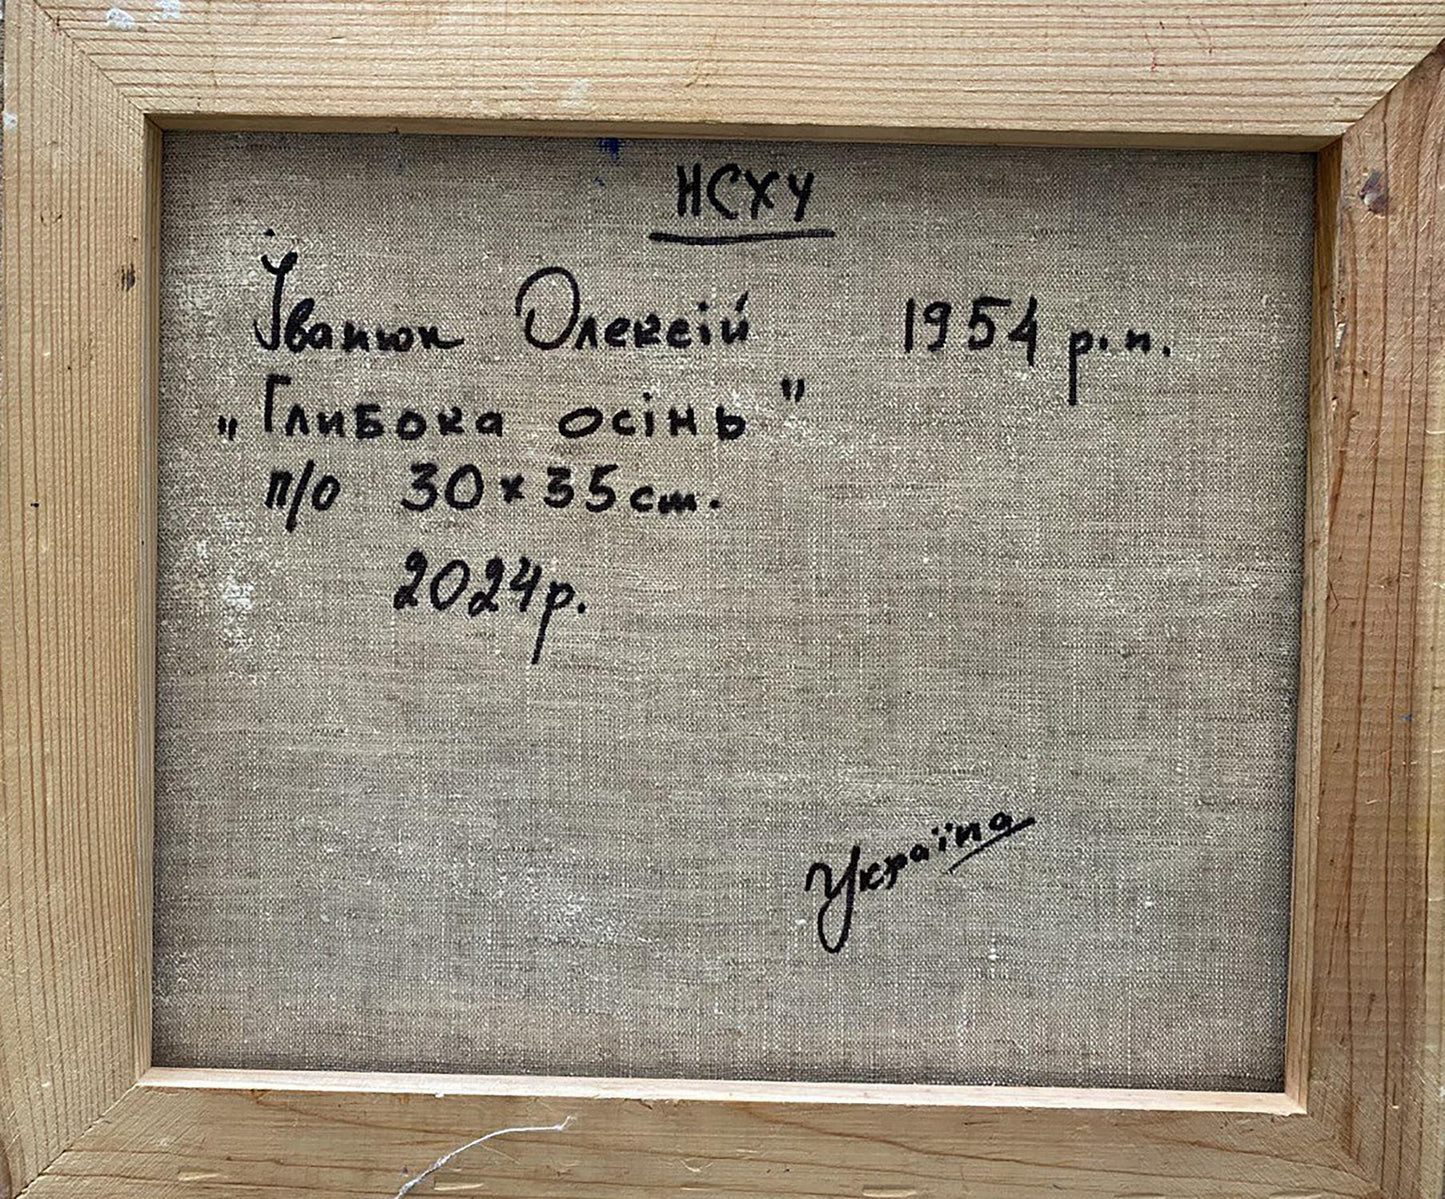 НСХУ
Іванюк Олексій 1954 р.н.
„Глибока осінь"
п/о 30×35 ст.
2024р.
Україна